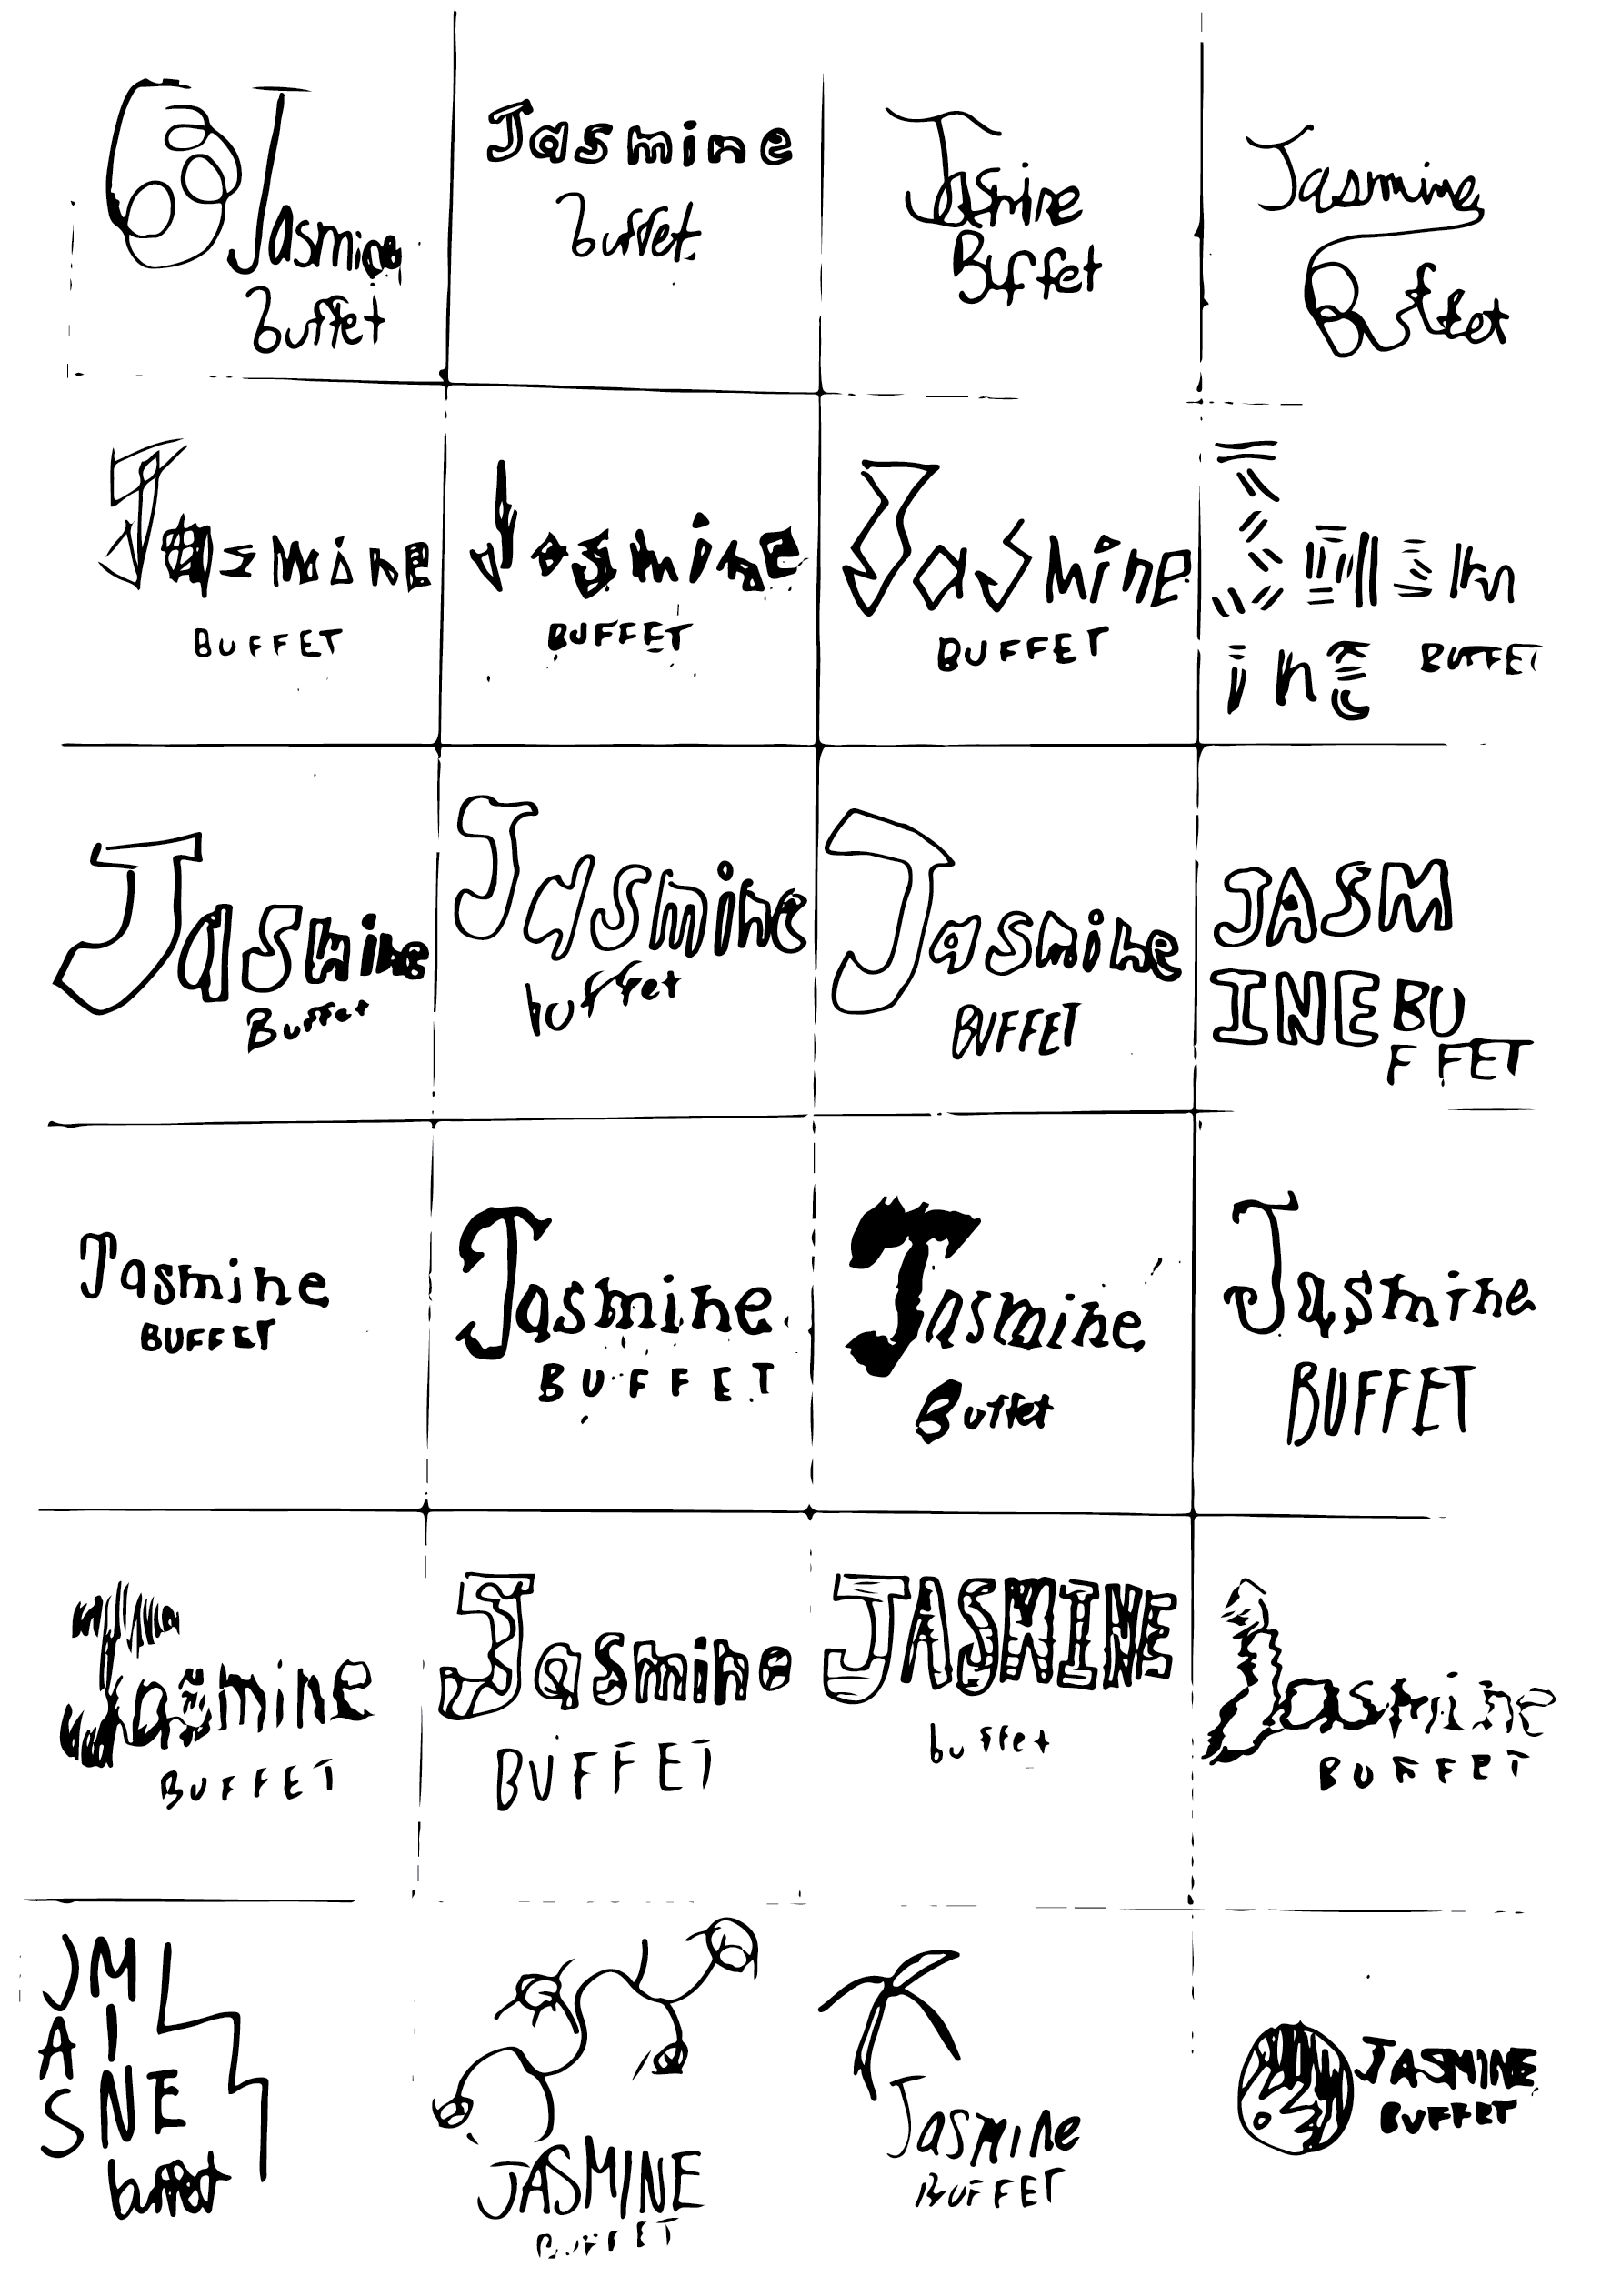 Jasmine
buffet
Jasmine
buffet
Jasmine
Buffet
Jasmine
Buffet
Jasmine
BUFFET
Jasmine
BUFFET
JaSmine
BUFFET
Jasm
ine BUFFET
Jasmine
Buffet
Jasmine
buffet
Jasmine
BUFFET
JASM
INE BU
FFET
Jasmine
BUFFET
Jasmine
BUFFET
Jasmine
Buffet
Jasmine
BUFFET
Jasmine
BUFFET
Jasmine
BUFFET
JASMINE
buffet
Jasmine
BUFFET
JM
AI
SNE
buffet
JASMINE
BUFFET
Jasmine
BUFFET
JASMINE
BUFFET